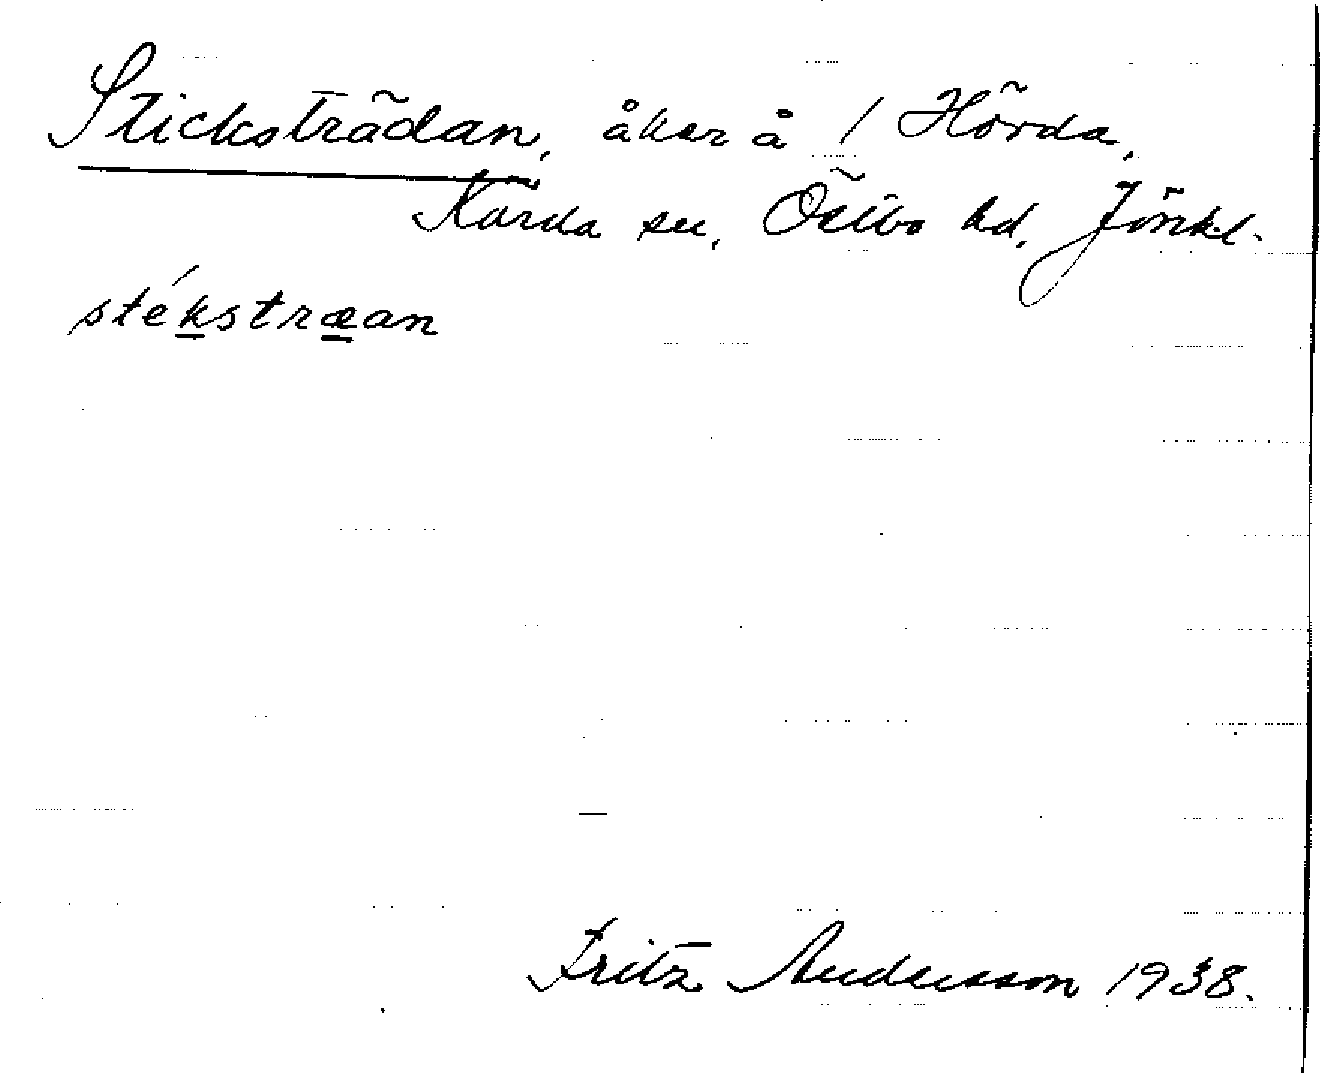 Stickströdan, åker å / Hörda,
Kärda sn, Östbo hd, Jönkl.
stékstræan
Fritz Andersson 1938.